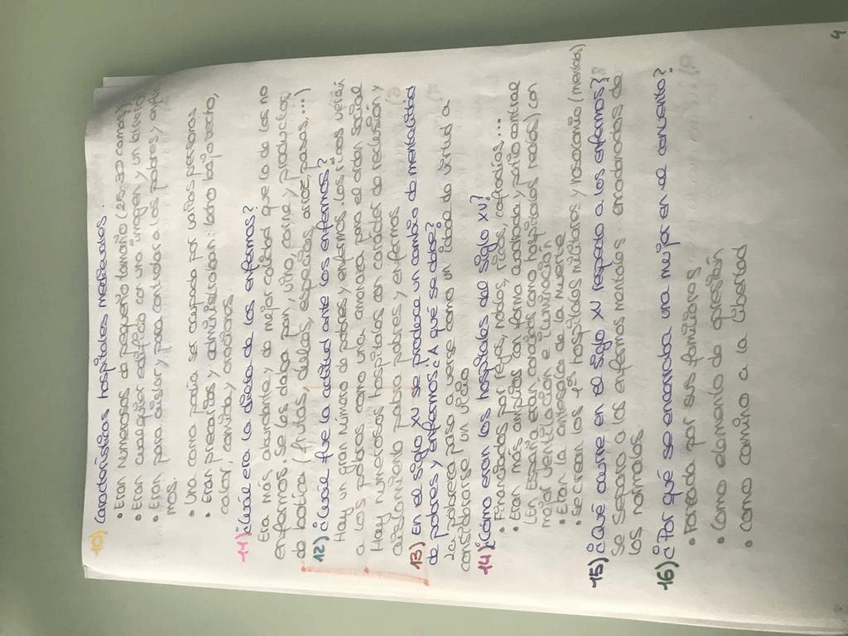 10) Características hospitales medievales.
• Eran numerosos de pequeño tamaño (25, 30 camas)
• Eran cualquier edificio con una imagen y un
• Eran para aislar y para controlar a los pobres y
mos.
• Una cama podía ser ocupada por varias personas
• Eran precarios y administraban: techo bajo techo,
calor, comida y oraciones
11) ¿Cual era la dieta de los enfermos?
Era más abundante y de mejor calidad que la de los no
enfermos. Se les daba pan, vino, carne y productos
de botica (frutas, dulces, especias, arroz, pasas, ...)
12) ¿Cual fue la actitud ante los enfermos?
Hay un gran número de pobres y enfermos. Los ricos
a los pobres como una amenaza para el orden social
Hay numerosos hospitales con caracter de reclusión y
aislamiento para pobres y enfermos
13) En el siglo XV se produce un cambio de mentalidad
de pobres y enfermos ¿A qué se debe?
La pobreza paso a verse como un ideal de virtud a
considerarse un vicio
14) ¿Cómo eran los hospitales del siglo XV?
• Financiados por reyes, nobles, ricos, cofradías...
• Eran más amplios con forma cuadrada y patio central
(en España eran conocidos como hospitales reales) con
mejor ventilación e iluminación
• Eran la antesala de la muerte
• Se crean los 1os hospitales militares y nosocomio (mentales)
15) ¿Qué ocurre en el siglo XV respecto a los enfermos?
Se separa a los enfermos mentales encadenados de
los normales.
16) ¿Por qué se encontraba una mujer en el convento?
• Forzada por sus familiares
• Como elemento de opresión
• Como camino a la libertad
4